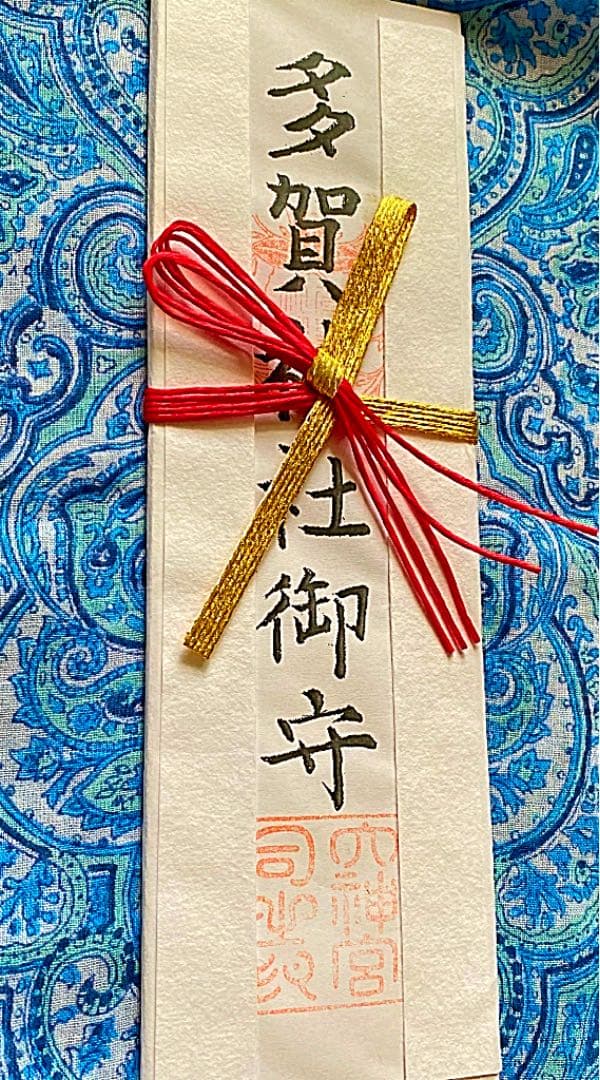 多賀神社御守
大神宮
司